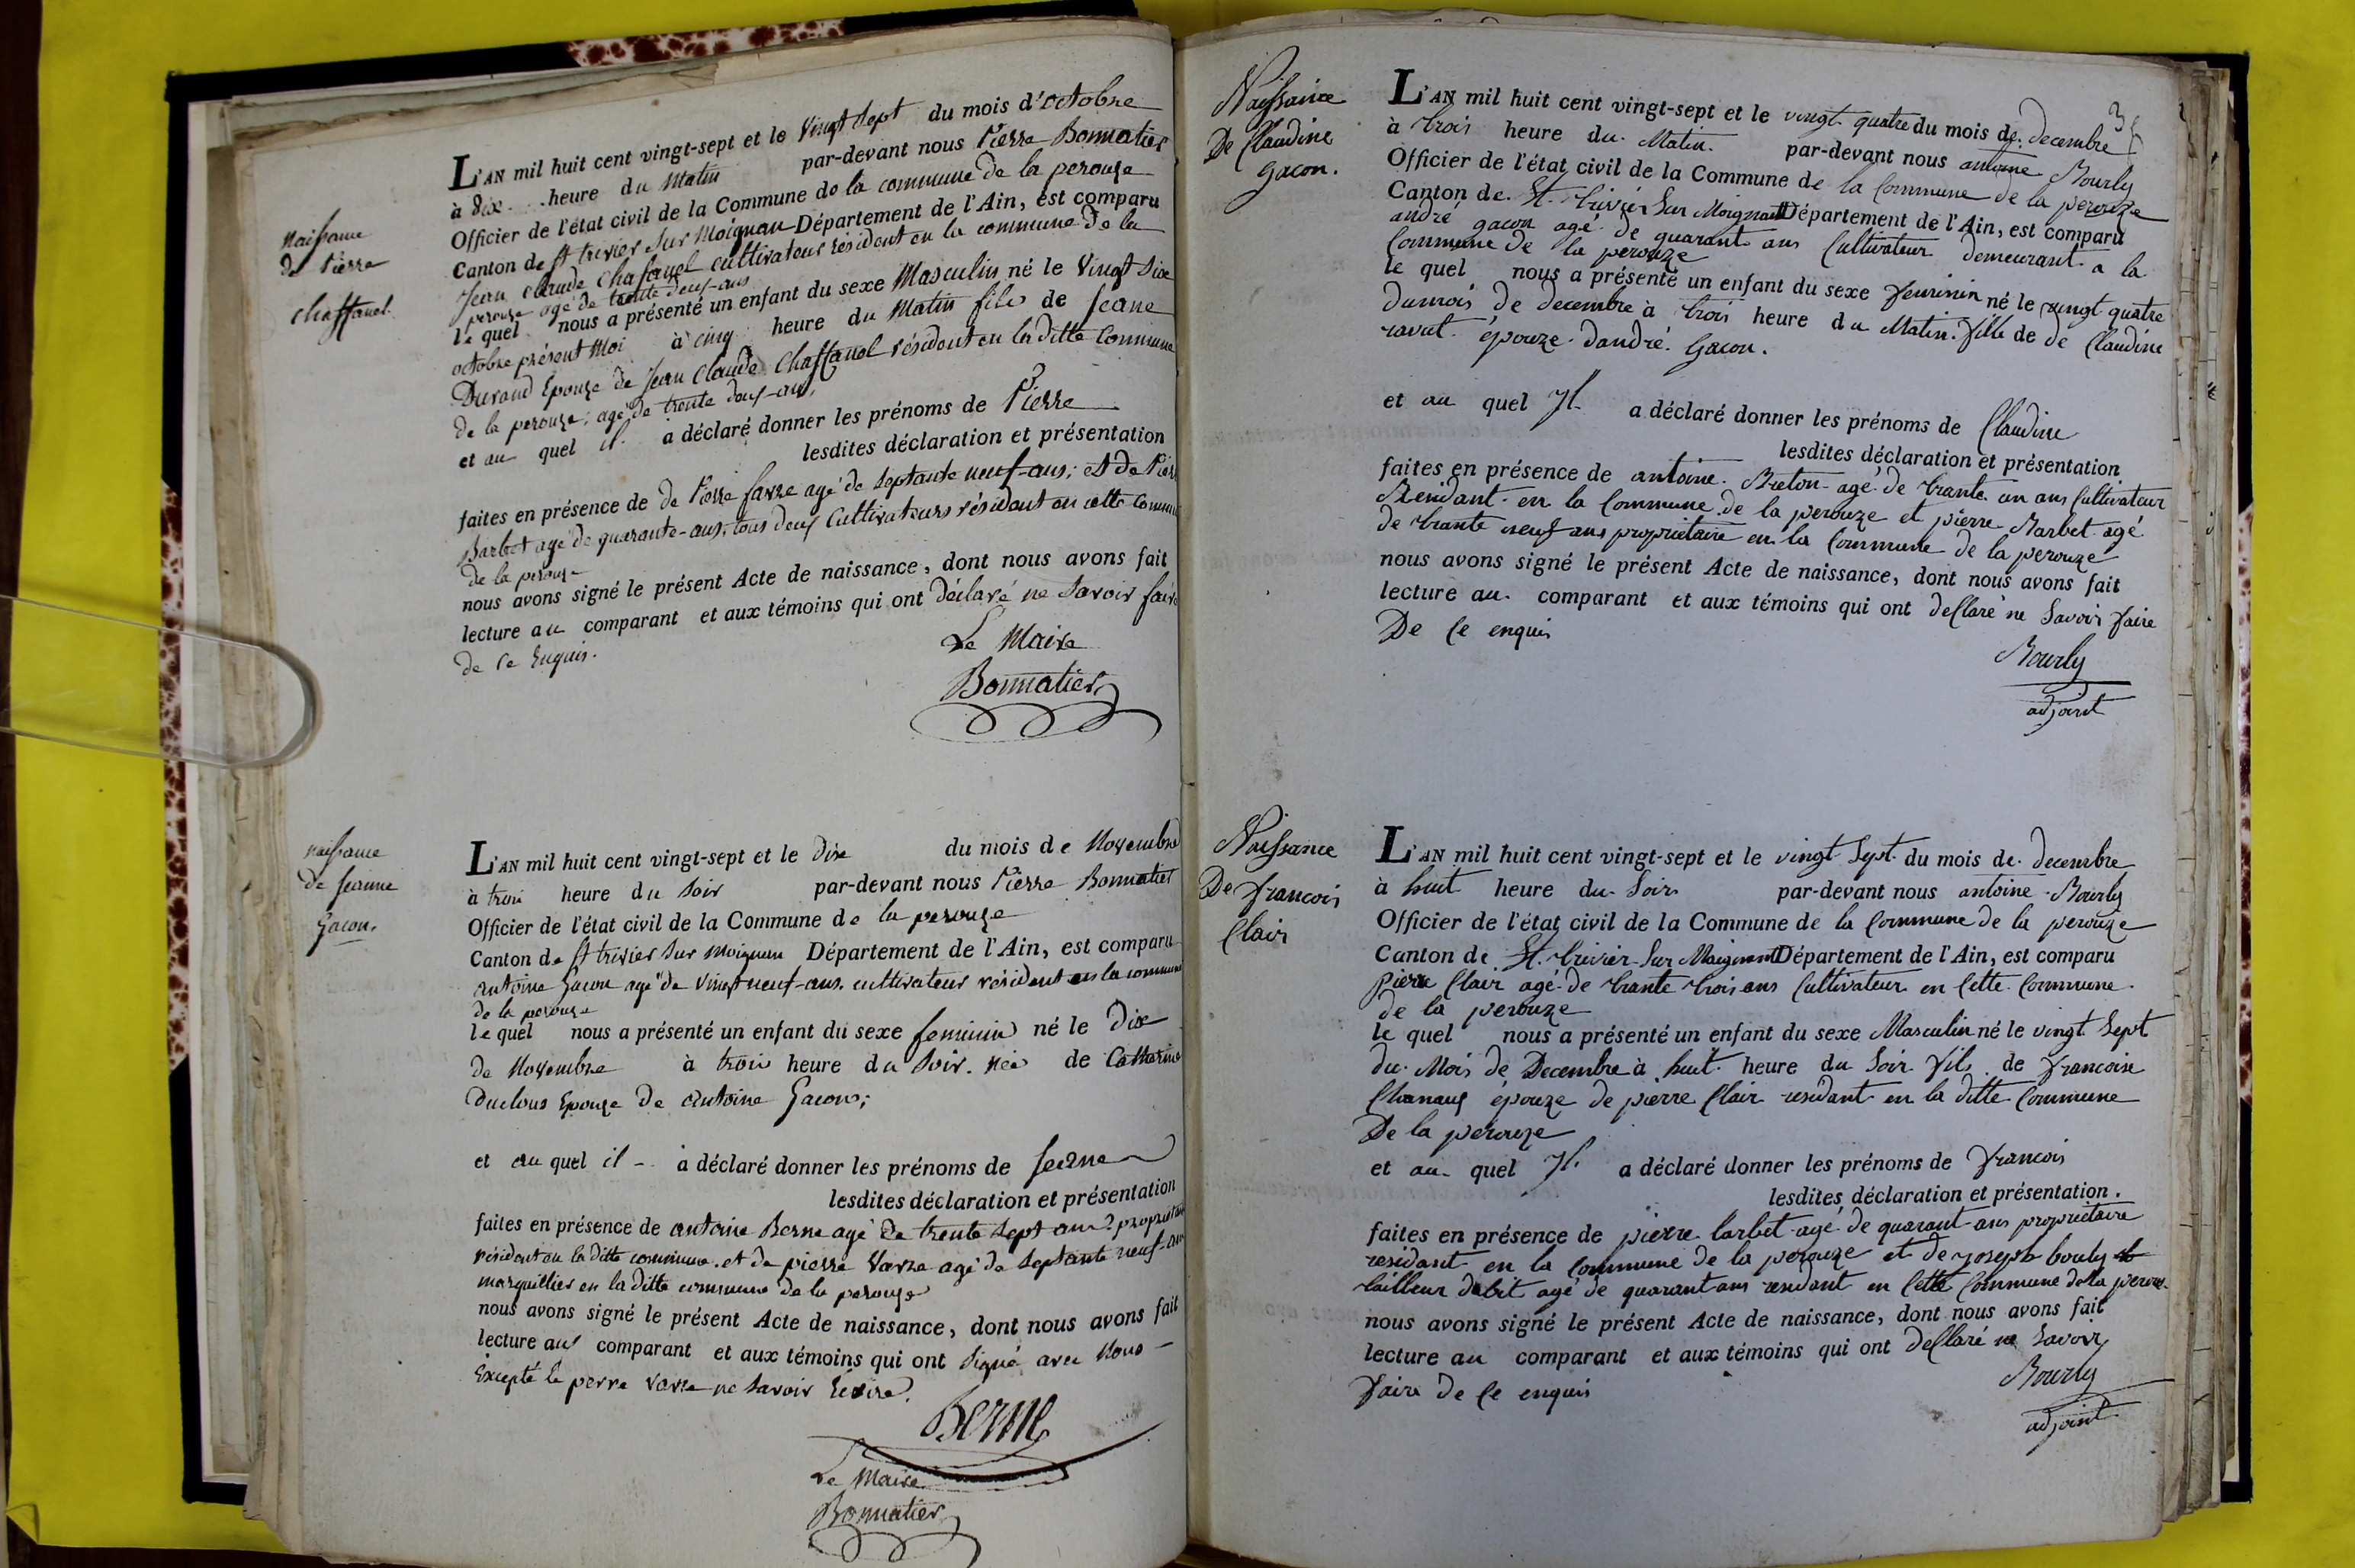 naissance
de Pierre
chaffanel.
L'AN mil huit cent vingt-sept et le Vingt Sept du mois d'octobre
à dix heure du Matin par-devant nous Pierre Bonnatier
Officier de l'état civil de la Commune de la commune de la perouze
Canton de St trivier Sur Moignan Département de l'Ain, est comparu
Jean Claude Chafanel cultivateur résident en la commune de la
perouze agé de trente deux-ans
le quel nous a présenté un enfant du sexe Masculin né le Vingt Six
octobre présent Moi à cinq heure du Matin fils de Jeane
Durand Epouze de Jean Claude Chaffanel résident en la ditte Commune
de la perouze; agé de trente deux-ans,
et au quel il a déclaré donner les prénoms de Pierre
lesdites déclaration et présentation
faites en présence de de Pierre favre agé de Septante neuf-ans; et de Pierre
Barbet agé de quarante-ans, tous deux Cultivateurs résident en cette Commu
de la perouze
nous avons signé le présent Acte de naissance, dont nous avons fait
lecture au comparant et aux témoins qui ont déclaré ne Savoir faire
de Ce Enquis.
Le Maire
Bonnatier
naissance
de Jeanne
Gacon.
L'AN mil huit cent vingt-sept et le dix du mois de Novembre
à trois heure du Soir par-devant nous Pierre Bonnatier
Officier de l'état civil de la Commune de la perouze
Canton de St trivier Sur Moignan Département de l'Ain, est comparu
antoine Gacon agé de Vingt neuf-ans. cultivateur résident en la commune
de la perouze
le quel nous a présenté un enfant du sexe feminin né le Dix
de Novembre à trois heure du Soir. née de Catharine
Duclous Epouze de Antoine Gacon;
et au quel il a déclaré donner les prénoms de Jeanne
lesdites déclaration et présentation
faites en présence de antoine Berne agé de trente Sept ans propriétaire
résident en la ditte commune. et de pierre Varre agé de Septante neuf-ans
marguillier en la ditte commune de la perouze
nous avons signé le présent Acte de naissance, dont nous avons fait
lecture aux comparant et aux témoins qui ont Signé avec Nous
Excepté le perre Varre ne Savoir Ecrire.
Berne
Le Maire
Bonnatier
Naissance
De Claudine
Gacon.
L'AN mil huit cent vingt-sept et le vingt quatre du mois de decembre
à trois heure du Matin. par-devant nous antoine Bourly
Officier de l'état civil de la Commune de la Commune de la perouze
Canton de St. trivier Sur Moignant Département de l'Ain, est comparu
andré gacon agé de quarant ans Cultivateur demeurant a la
Commune de la perouze
le quel nous a présenté un enfant du sexe feminin né le vingt quatre
dumois de decembre à trois heure du Matin. fille de de Claudine
ravat épouze dandré Gacon.
et au quel Il a déclaré donner les prénoms de Claudine
lesdites déclaration et présentation
faites en présence de antoine Breton agé de trante un ans Cultivateur
Residant en la Commune de la perouze et pierre Barbet agé
de trante neuf ans propriétaire en la Commune de la perouze
nous avons signé le présent Acte de naissance, dont nous avons fait
lecture au comparant et aux témoins qui ont desllaré ne Savoir faire
De Ce enquis
Bourly
adjoint
Naissance
De francois
Clair
L'AN mil huit cent vingt-sept et le vingt Sept du mois de decembre
à huit heure du Soir par-devant nous antoine Bourly
Officier de l'état civil de la Commune de la Commune de la perouze
Canton de St. trivier Sur Moignant Département de l'Ain, est comparu
pierre Clair agé de trante trois ans Cultivateur en Cette Commune
de la perouze
le quel nous a présenté un enfant du sexe Masculin né le vingt Sept
du Mois de Decembre à huit heure du Soir fils de francoise
Chanaux épouze de pierre Clair residant en la ditte Commune
De la perouze
et au quel Il a déclaré donner les prénoms de francois
lesdites déclaration et présentation.
faites en présence de pierre barbet agé de quarant ans propriétaire
residant en la Commune de la perouze et de joseph bouly
tailleur dabit agé de quarant ans residant en Cette Commune de la perou
nous avons signé le présent Acte de naissance, dont nous avons fait
lecture au comparant et aux témoins qui ont desllaré ne Savoir
faire de Ce enquis
Bourly
adjoint